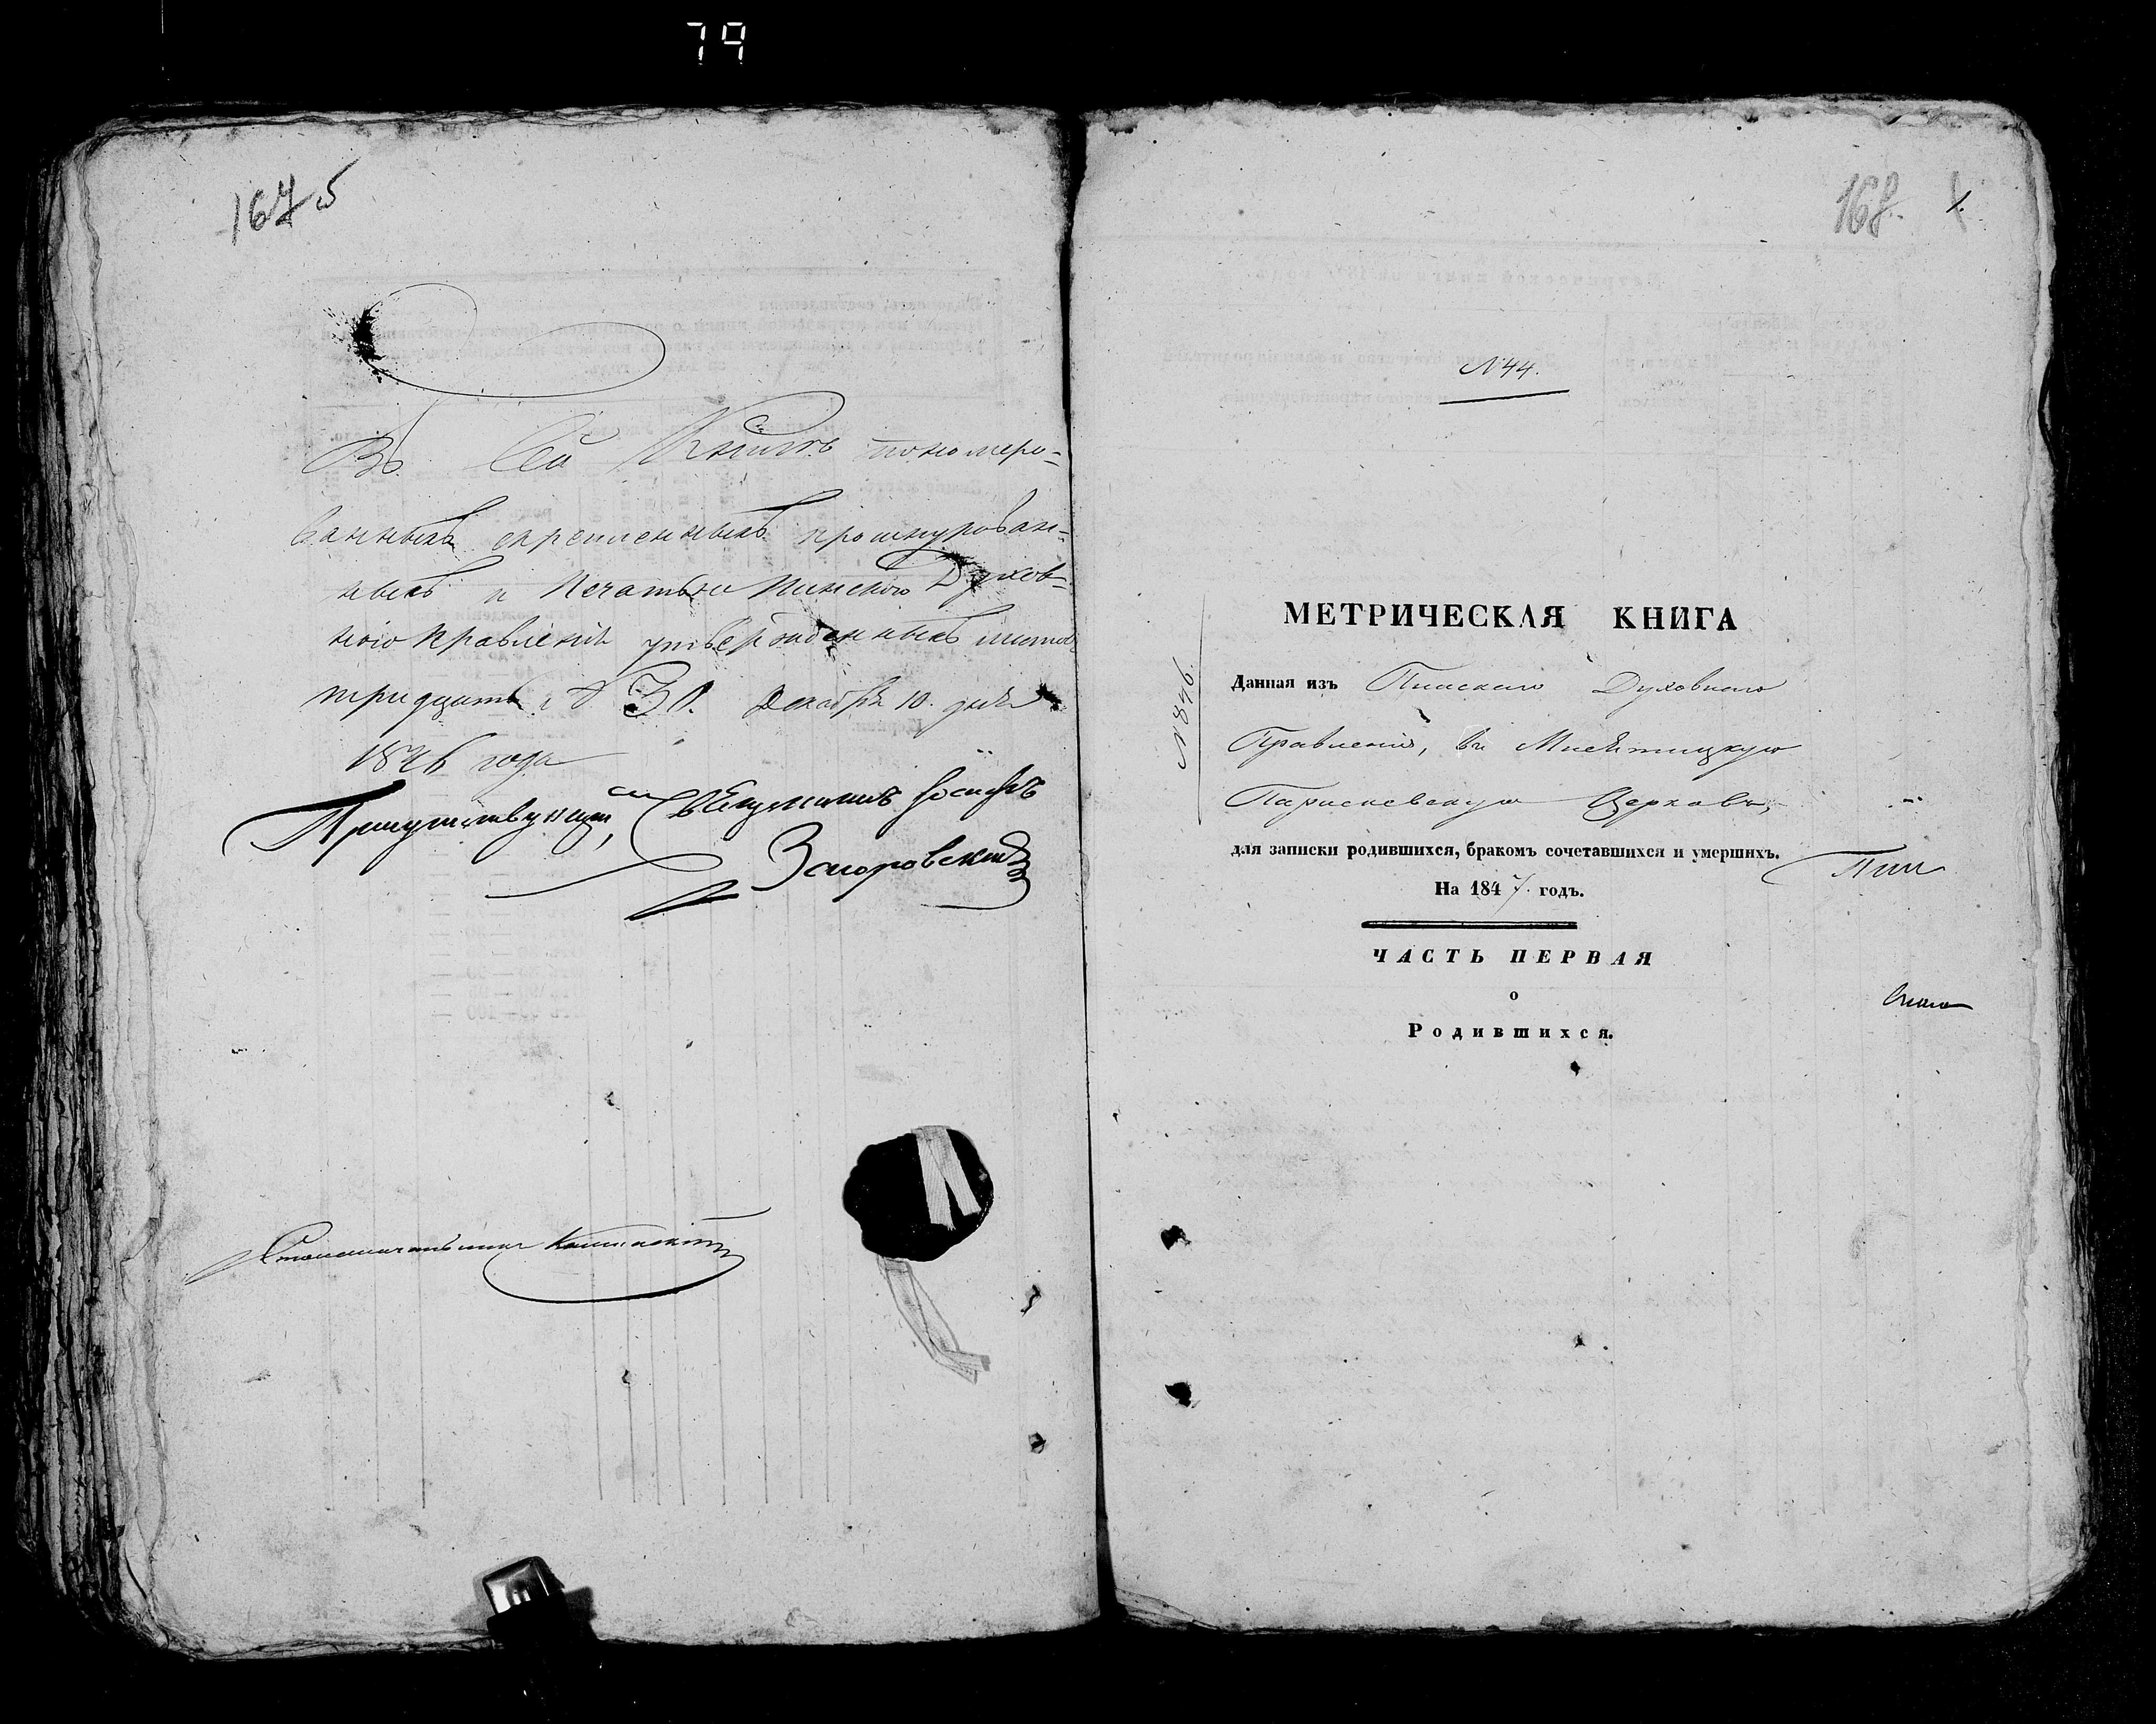 79
167 5
Въ Сей Книгѣ пономеро=
ванныхъ скрепленныхъ прошнурован=
ныхъ и Печатью Пинского Духов=
ного Правленія утвержденныхъ листов
тридцать Декабря 10. дня
1846 года
Присутствующій, Священникъ Іосифъ
Загоровскій
Столоначальникъ
168. 1.
N 44.
N 846.
МЕТРИЧЕСКАЯ КНИГА
Данная изъ Пинскаго Духовнаго
Правленія, въ
Параскевскую Церковь,
для записки родившихся, бракомъ сочетавшихся и умершихъ.
Пин
На 1847. годъ.
ЧАСТЬ ПЕРВАЯ
скаго
о
Родившихся.